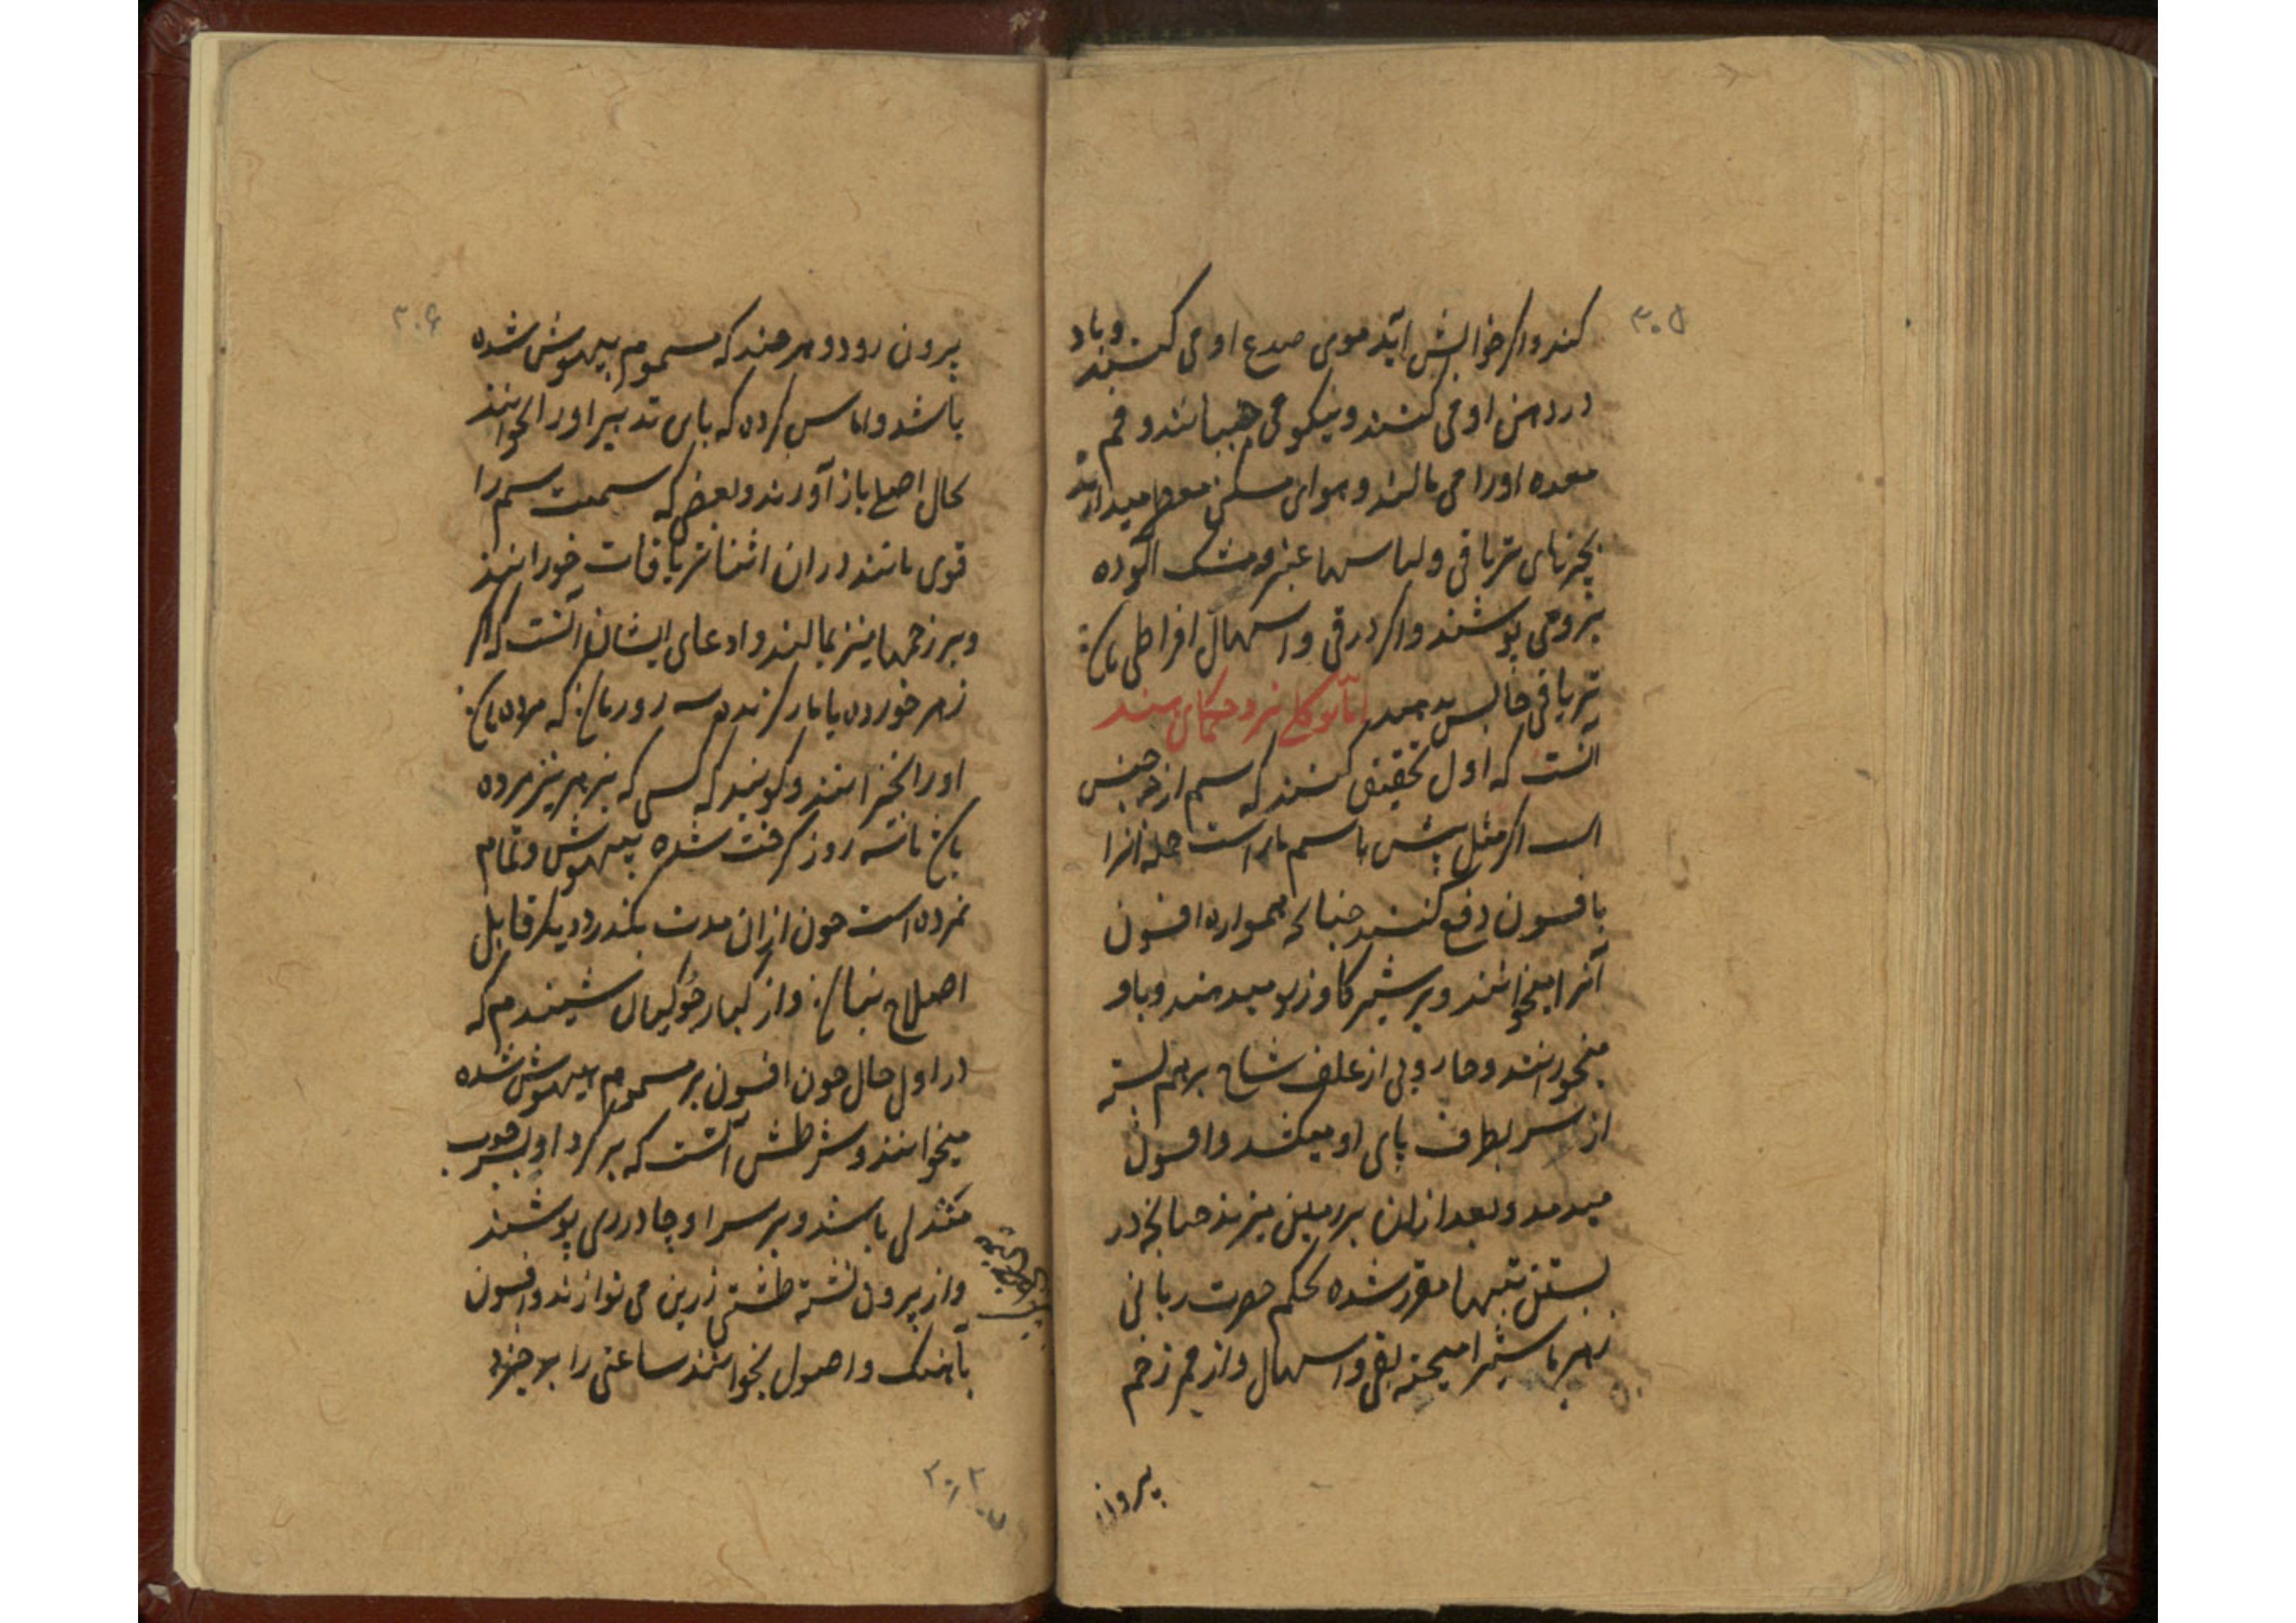 ۳۰۵
کند و اکر خوابش آید موی صدغ او می کشند و باد
در دهن او می کنند و نیکو می جنبانند و فم
معده او را می مالند و هوای مسکن معطر میدارند
بچیزهای تریاقی و لباسها عنبر و مشک آلوده
برو می پوشند و اکر در قی و اسهال افراطی باشد
تریاقی حابس بدهند اما توکلی نزد حکمای هند
آنست که اول تحقیق کنند که سم از چه جنس
است اکر مثل بیش یا سم مار است جمله آنرا
بافسون دفع کنند چنانکه همواره افسون
آنرا میخوانند و بر شیر کاو زیر میدمند و باو
میخورانند و جاروبی از علف شاخ برهم بسته
از سر بطرف پای او میکشد و افسون
میدمد و بعد ازان بر زمین میزند چنانچه در
بستن تبها مقرر شده بحکم حضرت ربانی
زهر با شیر آمیخته بقی و اسهال و از ممر زخم
بیرون
۳۰۶
بیرون رود و هر چند که مسموم بیهوش شده
باشد و اماس کرده که بای تدبیر او را بخوانند
بحال اصلی باز آورند و بعضی که سمیت سم را
قوی یابند در ان اثنا تریاقات خورانند
و بر زخمها نیز بمالند و ادعای ایشان آنست که اکر
زهر خورده یا مار کزنده سه روز باشد که مرده باشد
او را بخیزانند و کویند که کسی که بزهر نیز مرده
باشد تا سه روز کرفت شده بیهوش و تمام
نمرده است چون ازان مدت بکذرد دیکر قابل
اصلاح نباشد و از کبار جوکیان شنیدم که
در اول حال چون افسون بر مسموم بیهوش شده
میخوانند و شرطش آنست که بر کرد او بسر چوب
مندلی باشند و بر سر او چادری پوشند
و از بیرون نشسته طشتی زرین می نوازند و افسون
بآهنک و اصول بخوانند ساعتی را بر خیزد